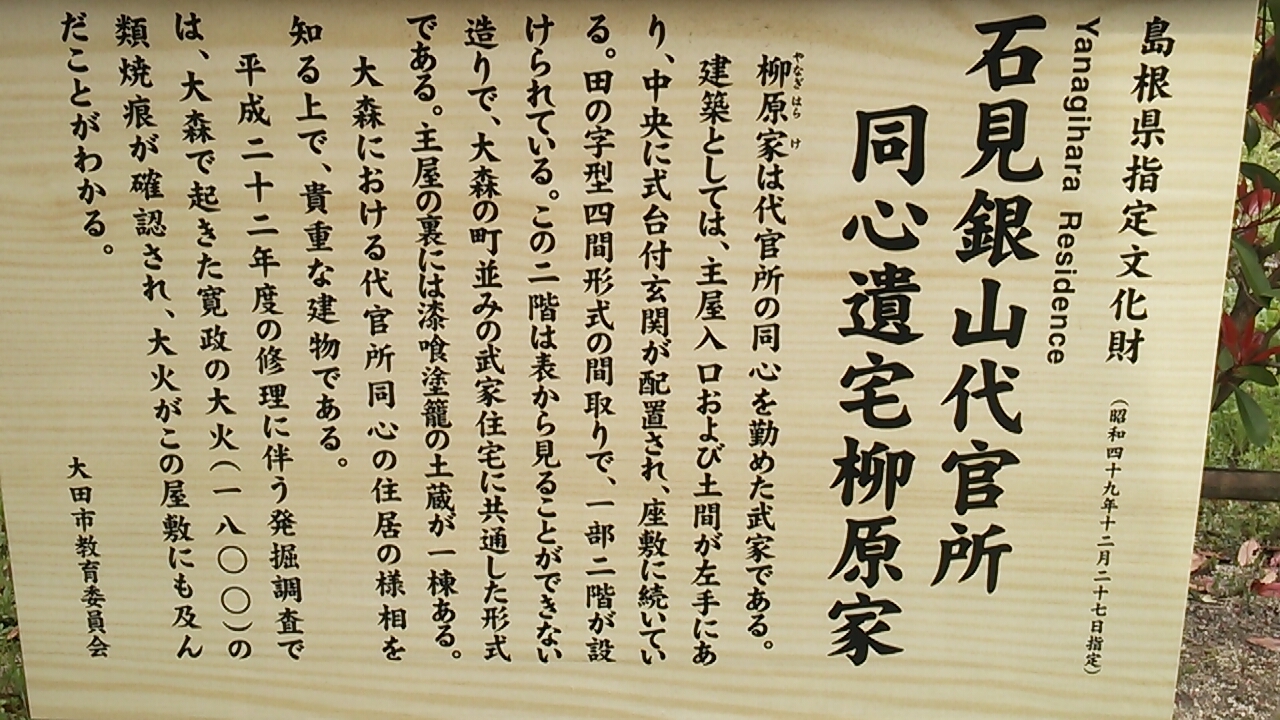 島根県指定文化財 （昭和四十九年十二月二十七日指定）
Yanagihara Residence
石見銀山代官所
同心遺宅柳原家
やなぎ はら け
柳原家は代官所の同心を勤めた武家である。
建築としては、主屋入口および土間が左手にあ
り、中央に式台付玄関が配置され、座敷に続いてい
る。田の字型四間形式の間取りで、一部二階が設
けられている。この二階は表から見ることができない
造りで、大森の町並みの武家住宅に共通した形式
である。主屋の裏には漆喰塗籠の土蔵が一棟ある。
大森における代官所同心の住居の様相を
知る上で、貴重な建物である。
平成二十二年度の修理に伴う発掘調査で
は、大森で起きた寛政の大火（一八〇〇）の
類焼痕が確認され、大火がこの屋敷にも及ん
だことがわかる。
大田市教育委員会